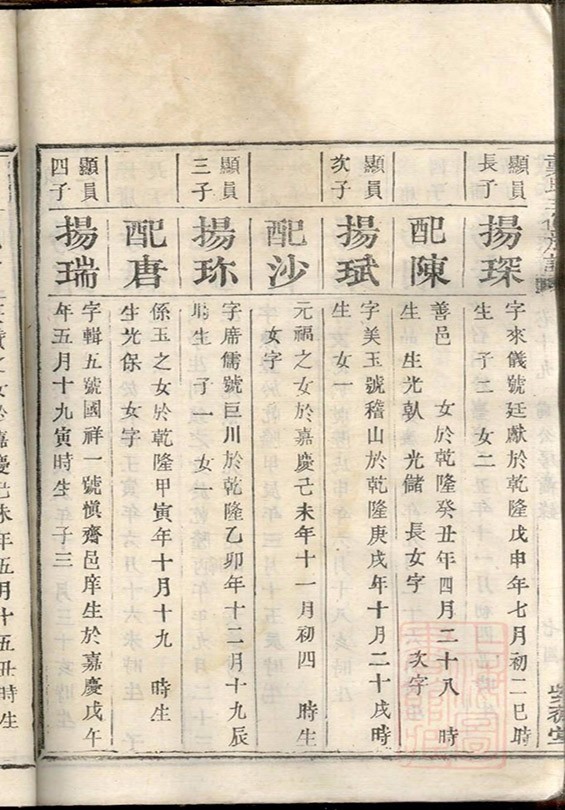 顯員
長子
揚琛
字來儀號廷獻於乾隆戊申年七月初二巳時
生 子二 女二
配陳
善邑 女於乾隆癸丑年四月二十八 時
生光 光儲 長女字 次字
顯員
次子
揚珷
字美玉號稽山於乾隆庚戌年十月二十戌時
生 女一
配沙
元福之女於嘉慶己未年十一月初四 時生
女字
顯員
三子
揚珎
字席儒號巨川於乾隆乙卯年十二月十九辰
時生 子一 女一
配唐
係玉之女於乾隆甲寅年十月十九 時生
生光保 女字
顯員
四子
揚瑞
字輯五號國祥一號慎齋邑庠生於嘉慶戊午
年五月十九寅時生 子三
之女於嘉慶己未年五月十五丑時生